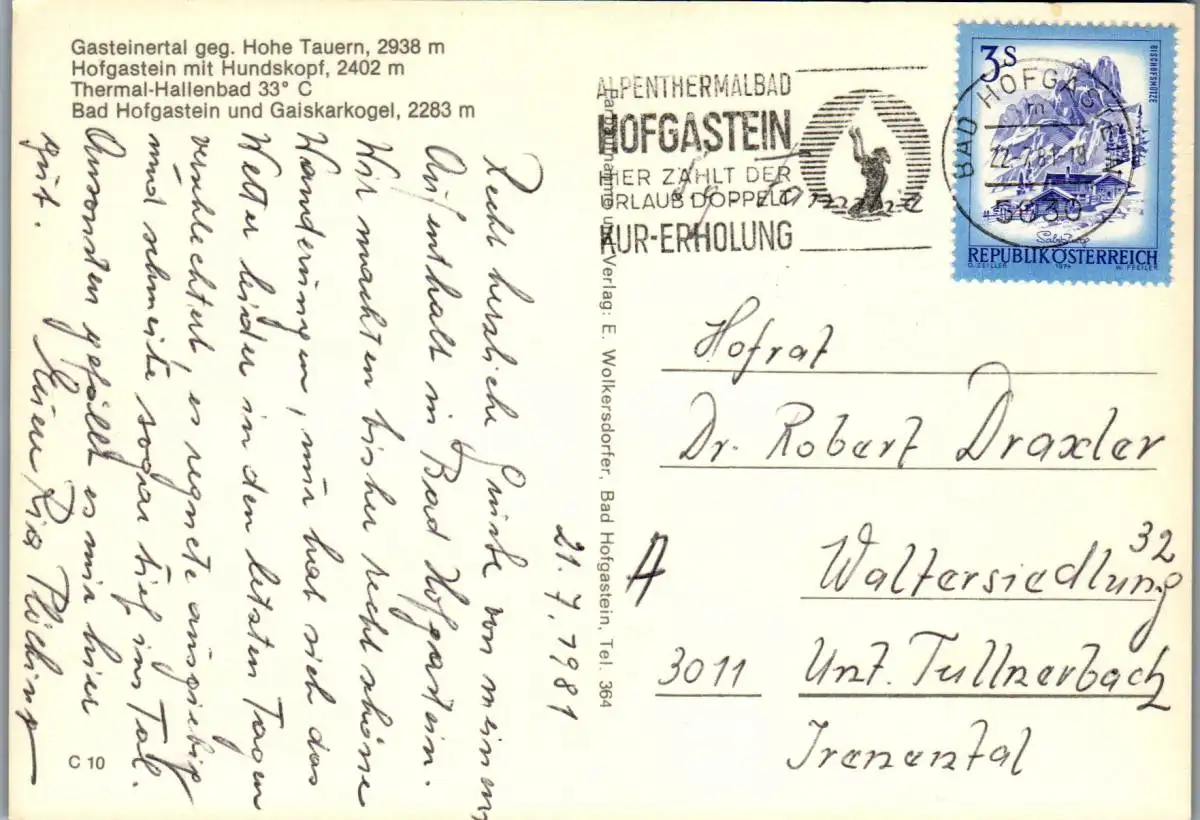 Gasteinertal geg. Hohe Tauern, 2938 m
Hofgastein mit Hundskopf, 2402 m
Thermal-Hallenbad 33° C
Bad Hofgastein und Gaiskarkogel, 2283 m
21. 7. 1981
Recht herzliche Grüße von meinem
Aufenthalt in Bad Hofgastein.
Wir machten bisher recht schöne
Wanderungen, nun hat sich das
Wetter leider in den letzten Tagen
verschlechtert, es regnete ausgiebig
und schneite sogar tief ins Tal.
Ansonsten gefällt es mir hier
gut.
Eure Ria
C 10
Verlag: E. Wolkersdorfer, Bad Hofgastein, Tel. 364
ALPENTHERMALBAD
HOFGASTEIN
HIER ZÄHLT DER
URLAUB DOPPELT
KUR-ERHOLUNG
BAD HOFGASTEIN
22.-7.81-18
5630
3S
BISCHOFSMÜTZE
Salzburg
REPUBLIK ÖSTERREICH
O. ZEILLER 1974 W. PFEILER
Familie
Hofrat
Dr. Robert Draxler
A
Waltersiedlung 32
3011 Unt. Tullnerbach
Irenental